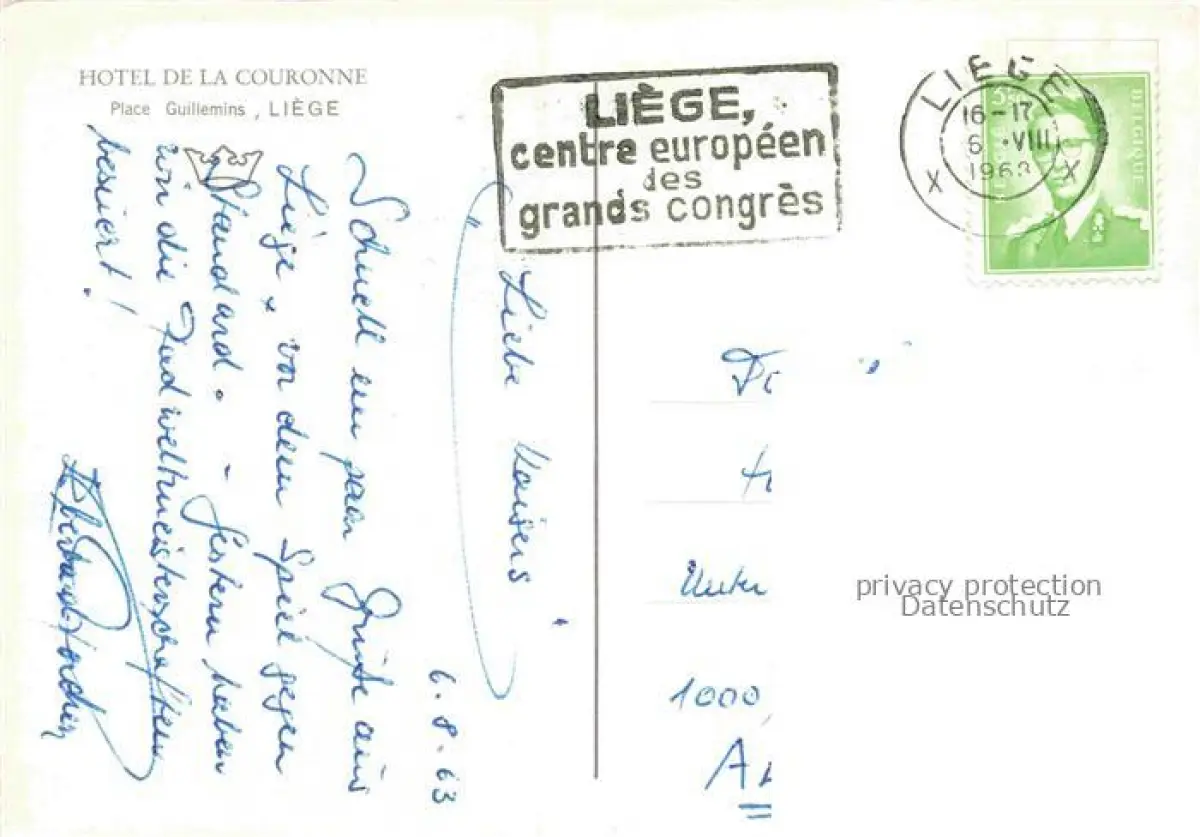 HOTEL DE LA COURONNE
Place Guillemins, LIÈGE
LIÈGE,
centre européen
des
grands congrès
LIEGE
16-17
6 • VIII
1963
X X
BELGIQUE
6.8.63
"Liebe Kaisers"
Schnell ein paar Grüße aus
Liège, vor dem Spiel gegen
Standard. - Gestern haben
wir die Radweltmeisterschaften
besucht!
1000
privacy protection
Datenschutz